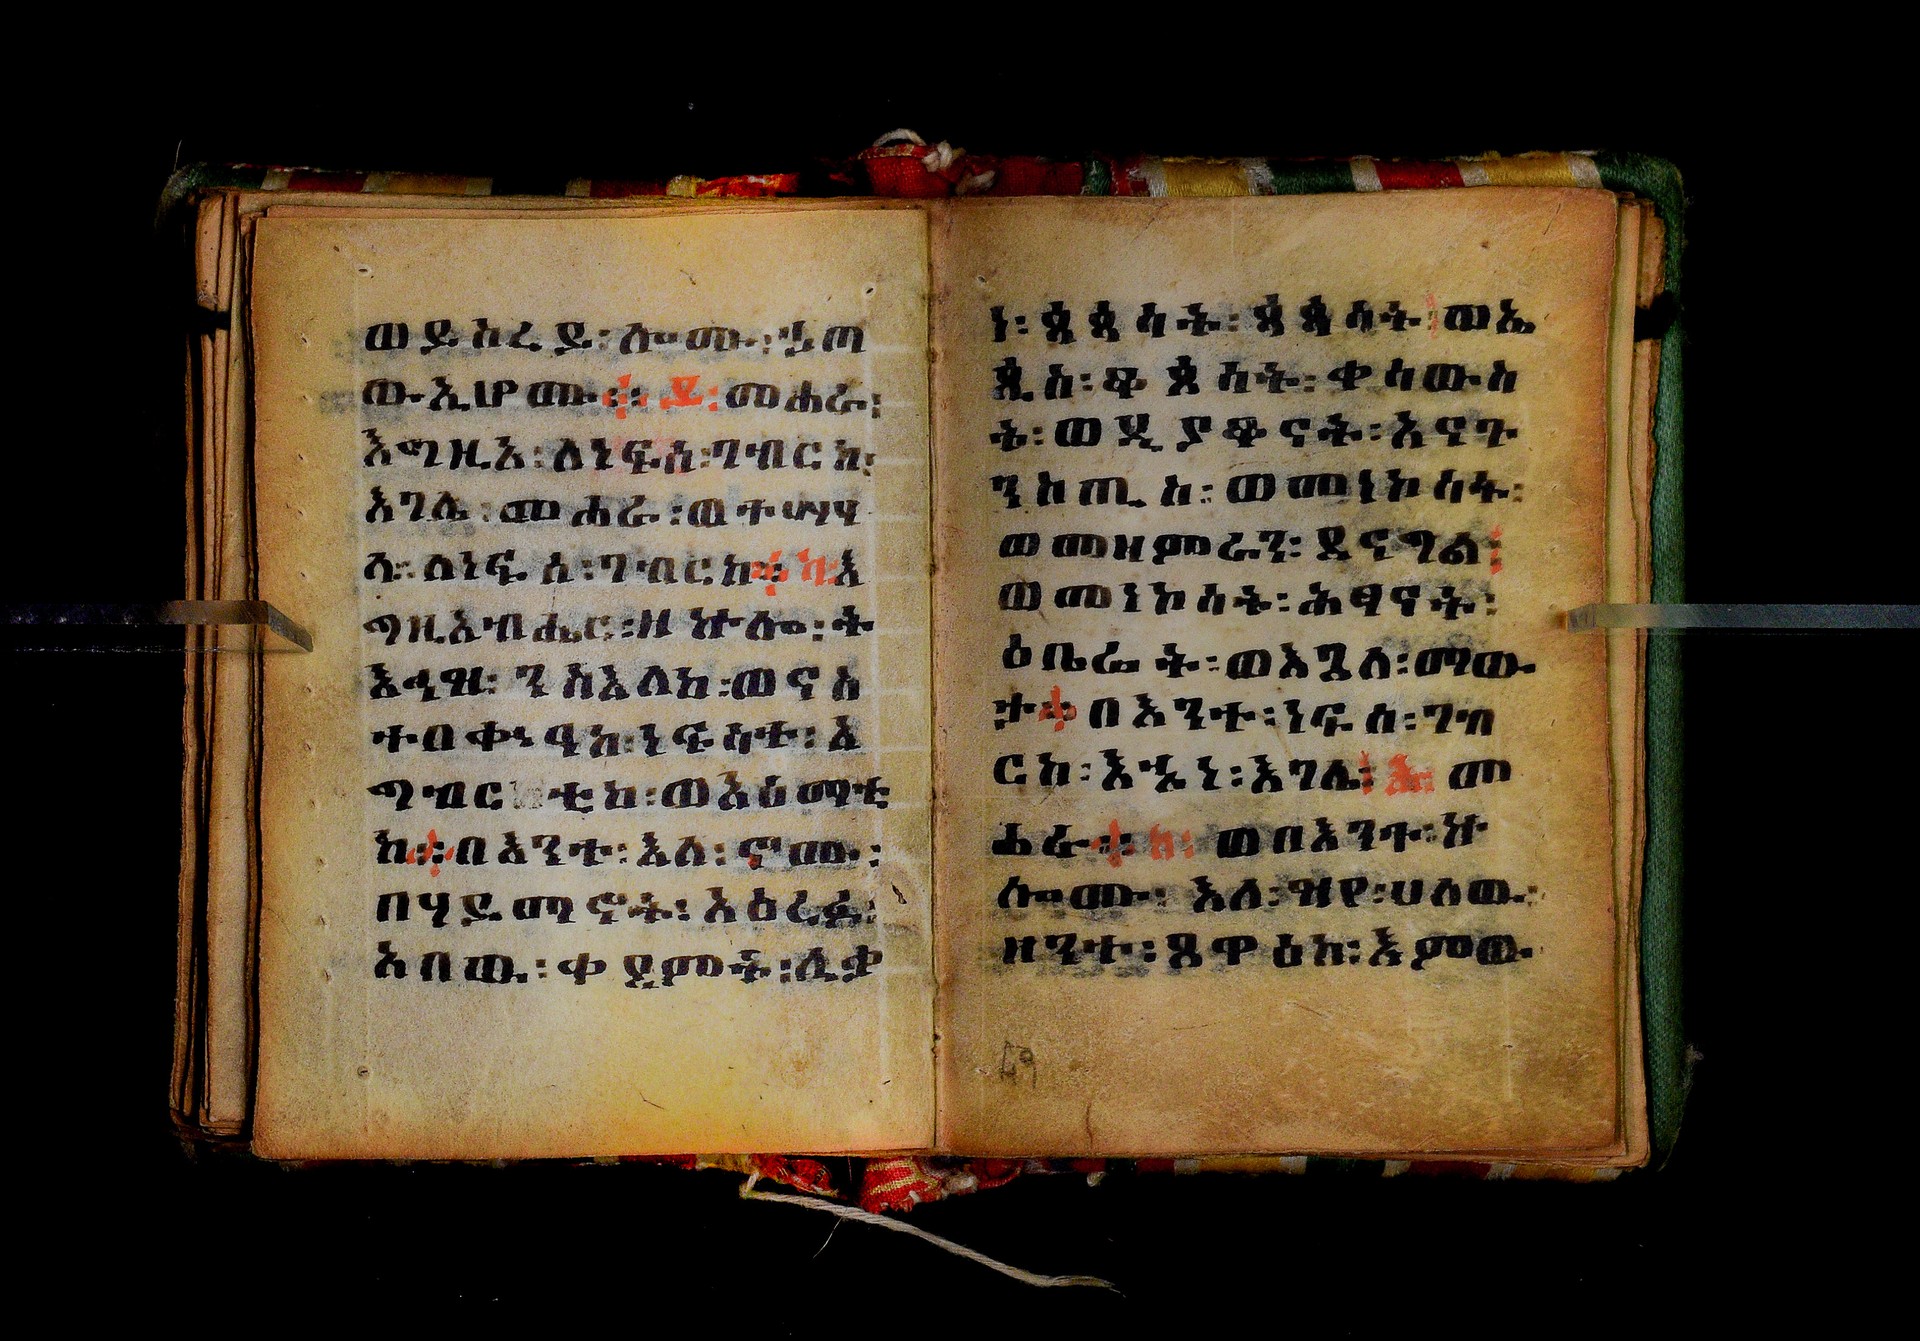 ወይስረይ፡ ሎሙ፡ ኃጣ
ውኢሆሙ። ይ፡ መሐራ፡
እግዚአ፡ ለነፍሰ፡ ገብርከ፡
እገሌ፡ መሐራ፡ ወተሣሃ
ላ፡ ለነፍሰ፡ ገብርከ። ካ፡ እ
ግዚአብሔር፡ ዘኵሎ፡ ት
እኅዝ፡ ንስእለከ፡ ወናስ
ተበቀኍዓከ፡ ነፍሳተ፡ አ
ግብርቲከ፡ ወአዕማቲ
ከ። በእንተ፡ እለ፡ ኖሙ፡
በሃይማኖት፡ አዕረፉ፡
አበዊ፡ ቀደምት፡ ሊቃ
ነ፡ ጳጳሳት፡ ጳጳሳት፡ ወኤ
ጲስ፡ ቆጶሳት፡ ቀሳውስ
ት፡ ወዲያቆናት፡ አናጕ
ንስጢስ፡ ወመነኮሳት፡
ወመዘምራን፡ ደናግል፡
ወመነኮሳት፡ ሕፃናት፡
ዕቤራት፡ ወእጓለ፡ ማው
ታ። በእንተ፡ ነፍሰ፡ ገብ
ርከ፡ እኁነ፡ እገሌ፡ እ፡ መ
ሐራ። ካ፡ ወበእንተ፡ ኵ
ሎሙ፡ እለ፡ ዝየ፡ ሀለዉ፡
ዘንተ፡ ጸዋዕከ፡ እምዉ
49